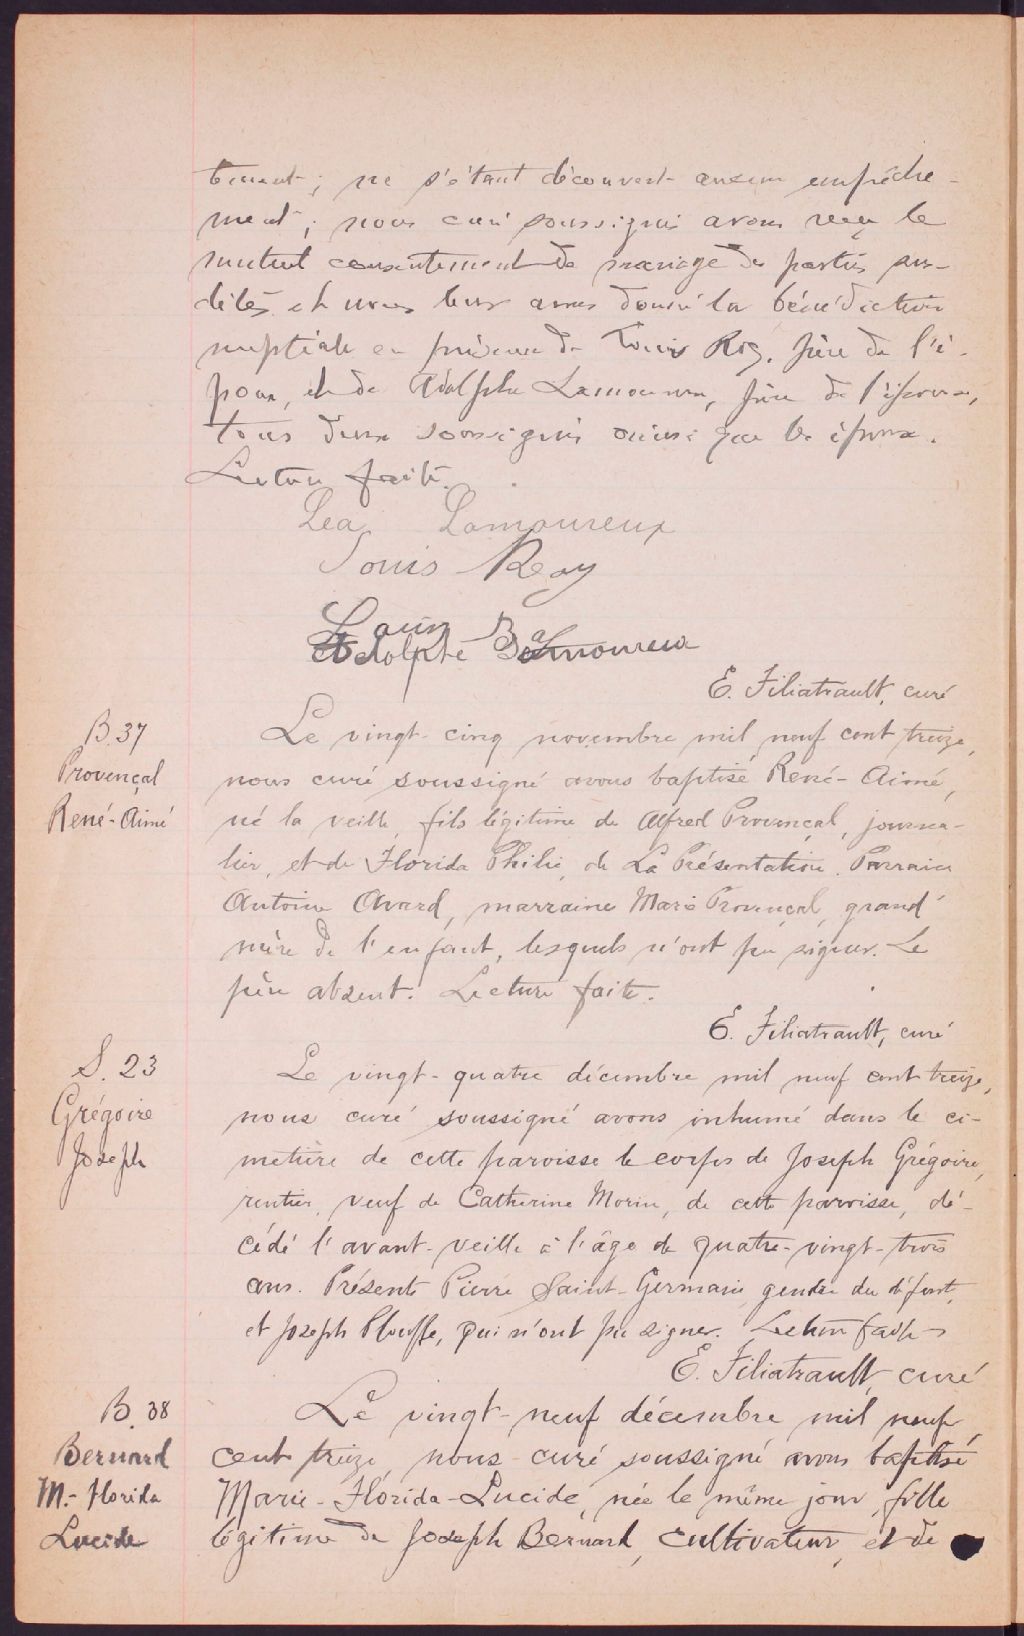 tement; ne s'étant découvert aucun empêche-
ment; nous curé soussigné avons reçu le
mutuel consentement de mariage des parties sus-
dites et nous leur avons donné la bénédiction
nuptiale en présence de Louis Roy, père de l'é-
poux, et de Adolphe Lamoureux, père de l'épouse,
tous deux soussignés ainsi que les époux.
Lecture faite.
Lea Lamoureux
Louis Roy
Louis
Adolphe Lamoureux
E. Filiatrault, curé
B. 37
Provençal
René-Aimé
Le vingt-cinq novembre mil neuf cent treize,
nous curé soussigné avons baptisé René-Aimé,
né la veille, fils légitime de Alfred Provençal, journa-
lier, et de Florida Philie, de La Présentation. Parrain
Antoine Avard, marraine Marie Provençal, grand'
mère de l'enfant, lesquels n'ont pu signer. Le
père absent. Lecture faite.
E. Filiatrault, curé
S. 23
Grégoire
Joseph
Le vingt-quatre décembre mil neuf cent treize,
nous curé soussigné avons inhumé dans le ci-
metière de cette paroisse le corps de Joseph Grégoire,
rentier, veuf de Catherine Morin, de cette paroisse, dé-
cédé l'avant-veille à l'âge de quatre-vingt-trois
ans. Présents Pierre Saint-Germain, gendre du défunt,
et Joseph Plouffe, qui n'ont pu signer. Lecture faite
E. Filiatrault, curé
B. 38
Bernard
M.-Florida
Lucide
Le vingt-neuf décembre mil neuf
cent treize, nous curé soussigné avons baptisé
Marie-Florida-Lucide, née le même jour, fille
légitime de Joseph Bernard, cultivateur, et de